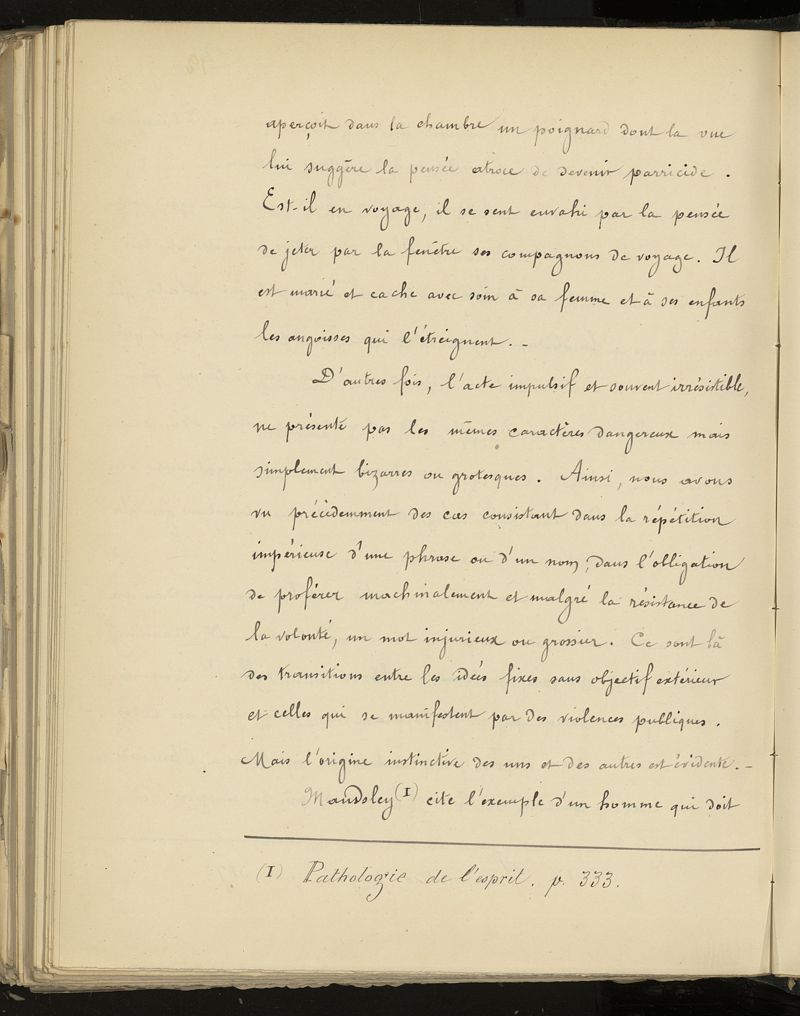 aperçoit dans la chambre un poignard dont la vue
lui suggère la pensée atroce de devenir parricide .
Est-il en voyage, il se sent envahi par la pensée
de jeter par la fenêtre ses compagnons de voyage. Il
est marié et cache avec soin à sa femme et à ses enfants
les angoisses qui l'étreignent. -
D'autres fois, l'acte impulsif et souvent irrésistible,
ne présente pas les mêmes caractères dangereux mais
simplement bizarres ou grotesques. Ainsi, nous avons
vu précédemment des cas consistant dans la répétition
impérieuse d'une phrase ou d'un nom, dans l'obligation
de proférer machinalement et malgré la résistance de
la volonté, un mot injurieux ou grossier. Ce sont là
des transitions entre les idées fixes sans objectif extérieur
et celles qui se manifestent par des violences publiques.
Mais l'origine instinctive des uns et des autres est évidente. -
Maudsley (I) cite l'exemple d'un homme qui doit
(I) Pathologie de l'esprit. p. 333.